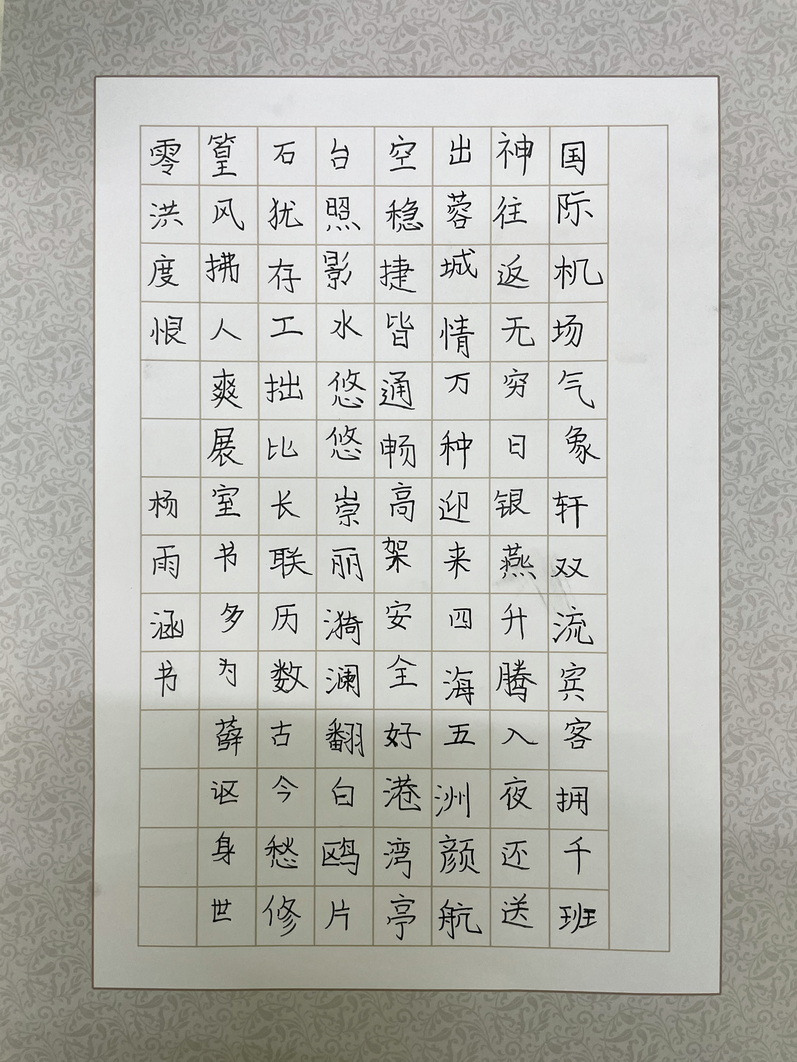 国际机场气象轩双流宾客拥千班
神往返无穷日银燕升腾入夜还送
出蓉城情万种迎来四海五洲颜航
空稳捷皆通畅高架安全好港湾亭
台照影水悠悠崇丽漪澜翻白鸥片
石犹存工拙比长联历数古今愁修
篁风拂人爽展室书多为薛讴身世
零洪度恨
杨雨涵书